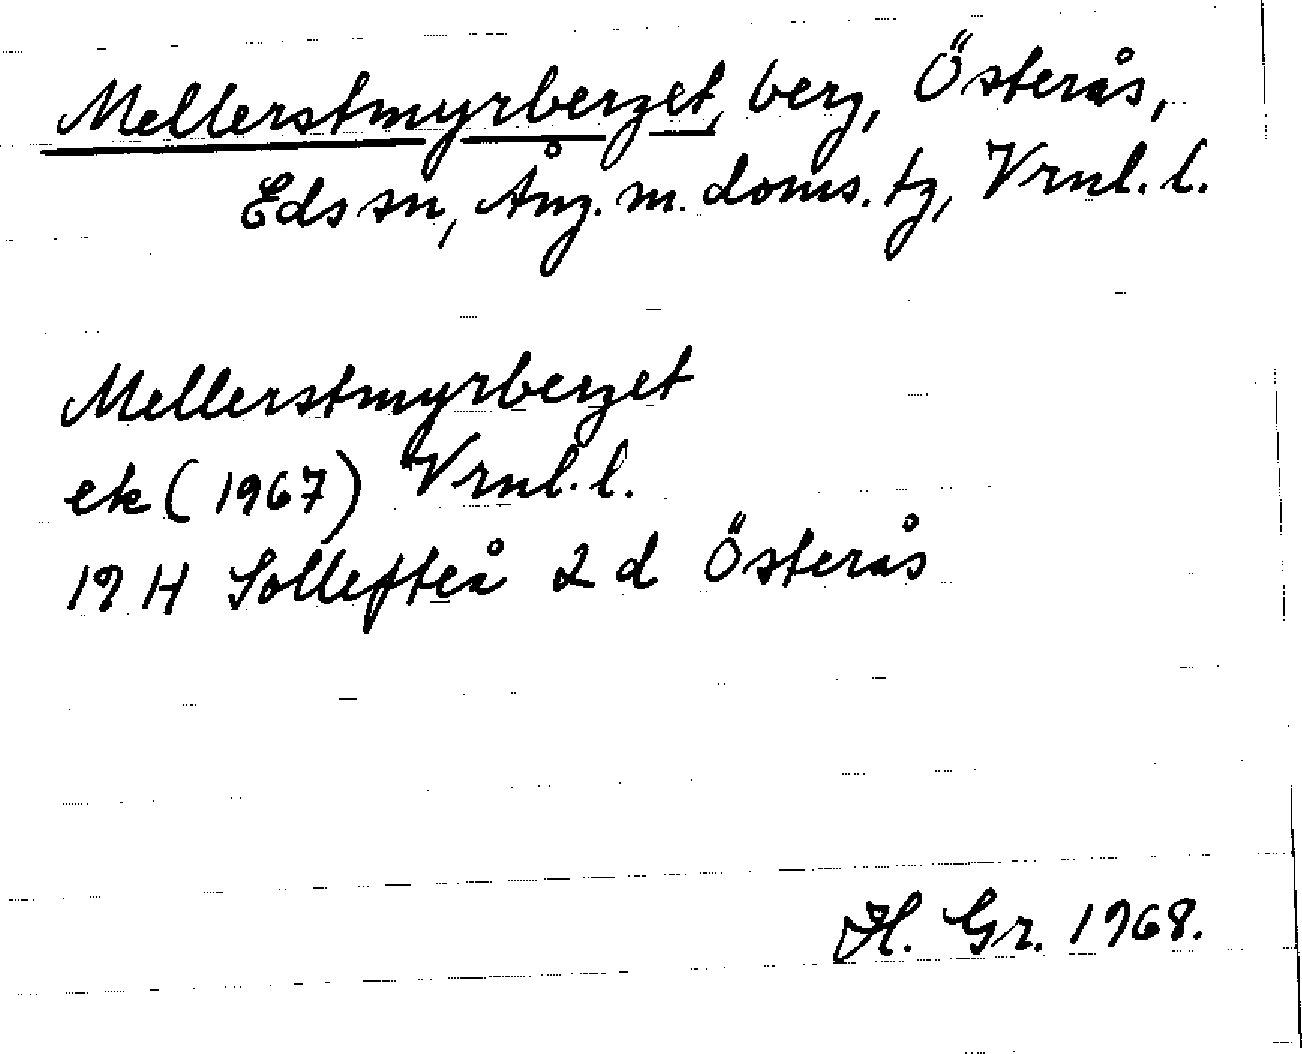 Mellerstmyrberget, berg, Österås,
Eds sn, Ång. m. doms. tg, Vrnl. l.
Mellerstmyrberget
ek (1967) Vrnl. l.
19 H Sollefteå 2 d Österås
H. Gr. 1968.